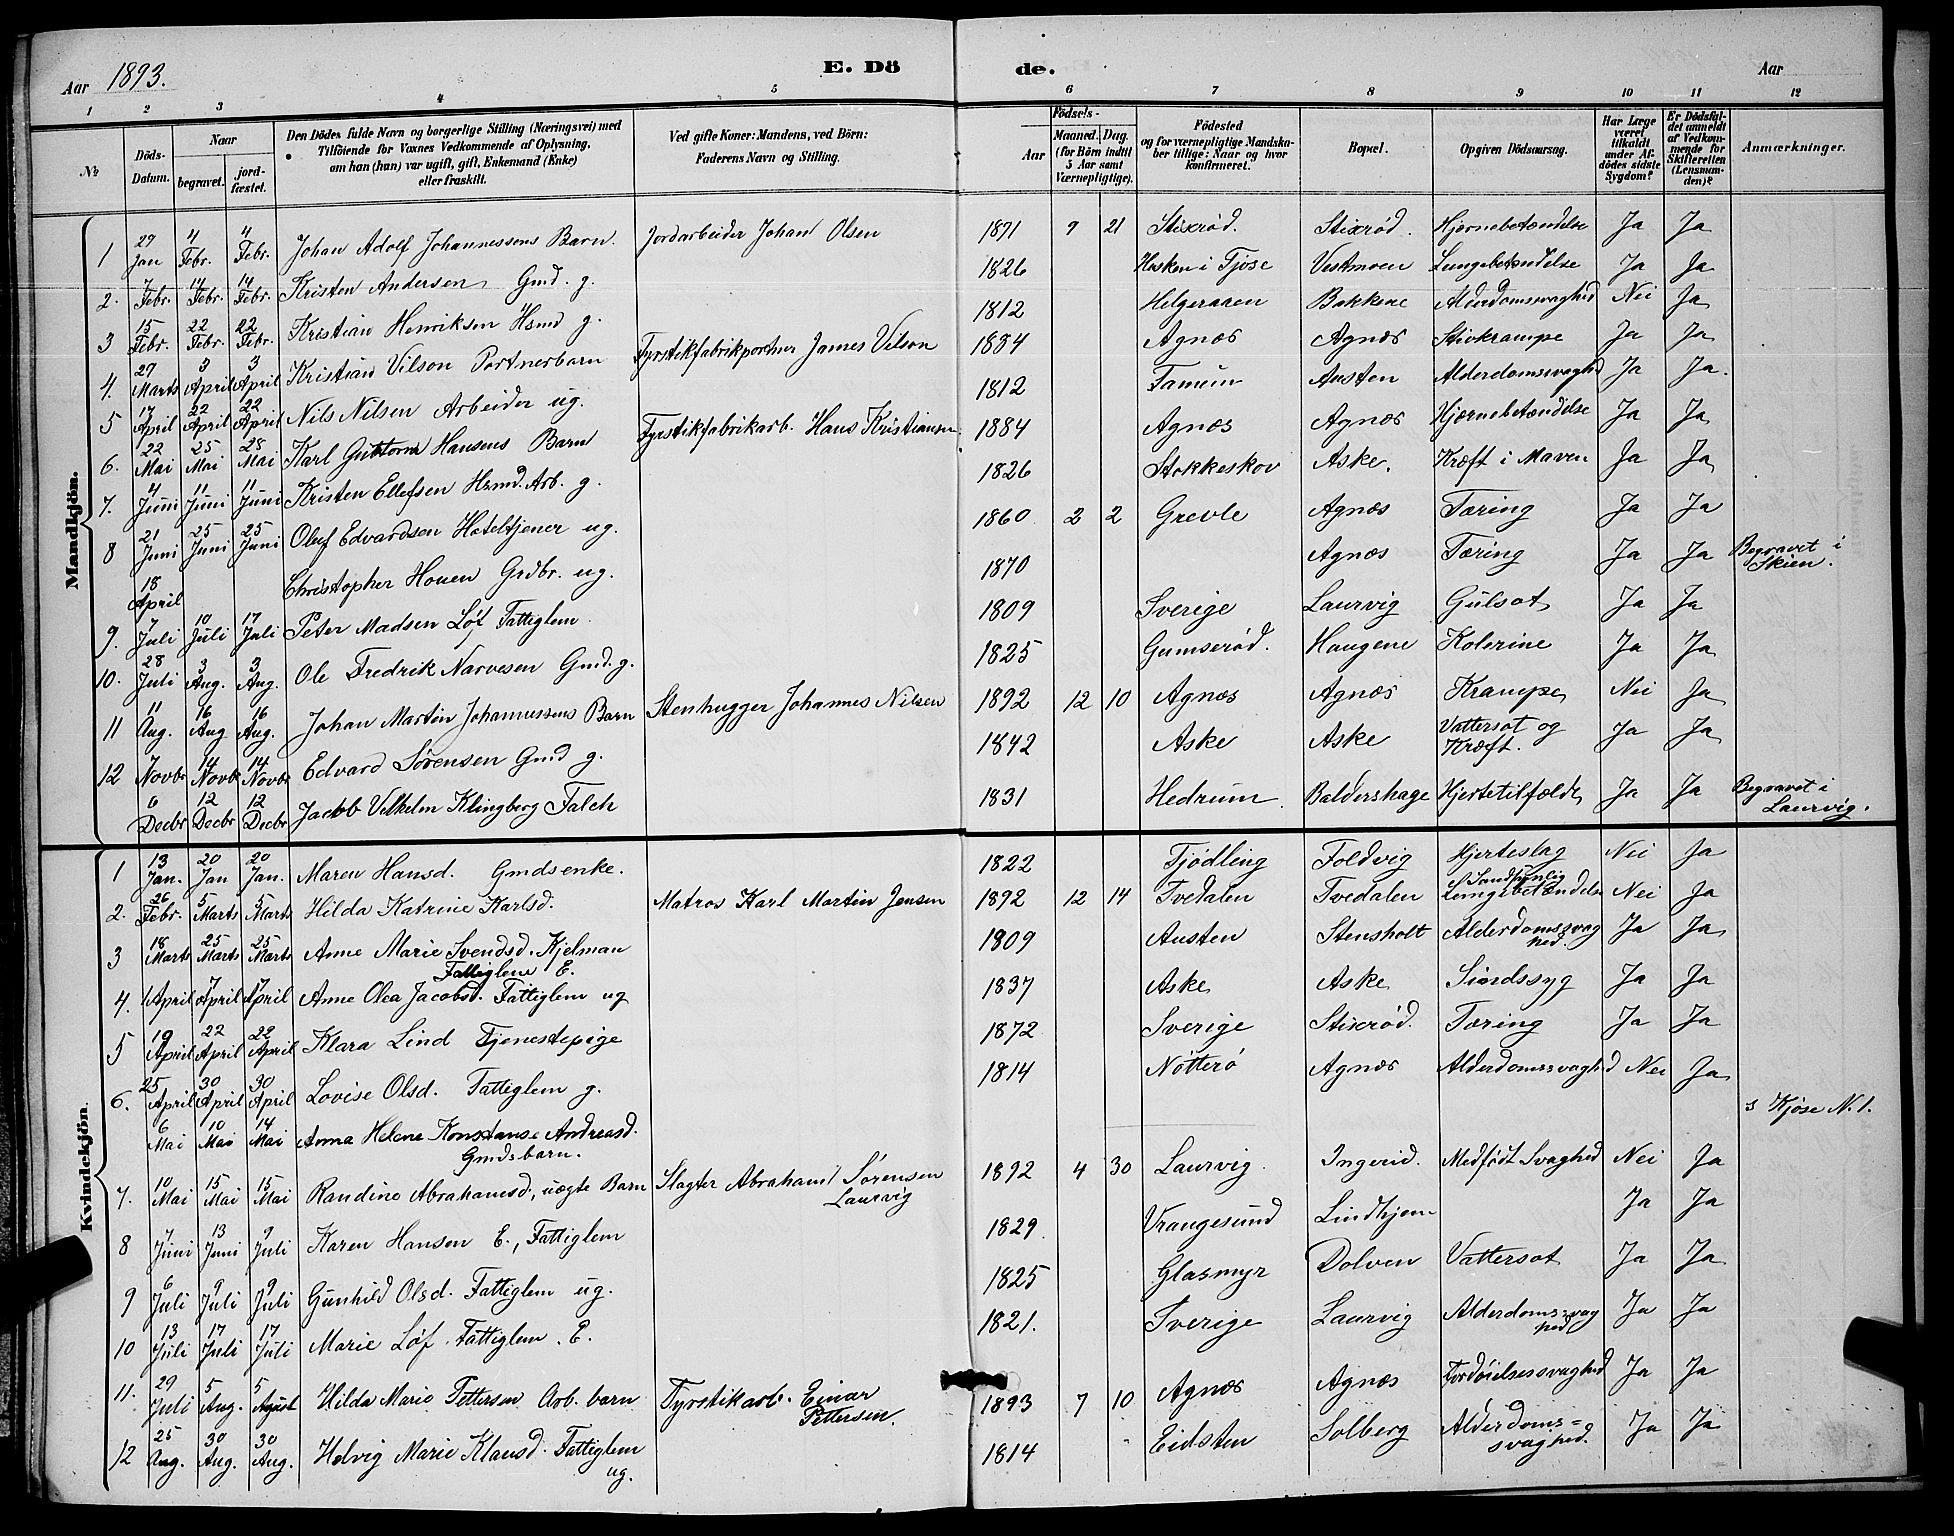 Aar 1893.
E. Dö de.
Aar
1 2 3 4 5 6 7 8 9 10 11 12
№
Döds-Datum.
Naar
begravet.
jordfæstet.
Den Dödes fulde Navn og borgerlige Stilling (Næringsvei) med Tilföiende for Voxnes Vedkommende af Oplysning, om han (hun) var ugift, gift, Enkemand (Enke) eller fraskilt.
Ved gifte Koner: Mandens, ved Börn: Faderens Navn og Stilling.
Födsels-
Aar
Maaned. Dag.
(for Börn indtil 5 Aar samt Værnepligtige).
Födested og for værnepligtige Mandskaber tillige: Naar og hvor konfirmeret.
Bopæl.
Opgiven Dödsaarsag.
Har Læge været tilkaldt under Afdödes sidste Sygdom?
Er Dödsfaldet anmeldt af Vedkommende for Skifteretten (Lensmanden)?
Anmærkninger.
Mandkjön.
1 29 Jan 4 Febr. 4 Febr. Johan Adolf Johannessens Barn. Jordarbeider Johan Olsen 1891 9 21 Stixrød. Stixrød. Hjernebetændelse Ja Ja
2. 7 Febr. 14 Febr. 14 Febr. Kristen Andersen Gmd. g. 1826 Hasken i Tjøse Vestmoen Lungebetændelse Ja Ja
3 15 Febr. 22 Febr. 22 Febr. Kristian Henriksen Hsmd g. 1812 Helgeraaen Bakkene Alderdomssvaghed Nei Ja
4. 27 Marts 3 April 3 April Kristian Vilson Portnerbarn Fyrstikfabrikportner James Vilson 1884 Agnæs Agnæs Stivkrampe Ja Ja
5 17 April 22 April 22 April Nils Nilsen Arbeider ug. 1812 Tanum Austen Alderdomssvaghed Ja Ja.
6. 22 Mai 25 Mai 28 Mai Karl Guttorm Hansens Barn Fyrstikfabrikarb. Hans Kristiansen 1884 Agnæs Agnæs Hjærnebetændelse Ja Ja
7. 4 Juni 11 Juni 11 Juni Kristen Ellefsen Hsmd. Arb. g. 1826 Stokkeskov Aske. Kræft i Maven Ja Ja
8 21 Juni 25 Juni 25 Juni Oluf Edvardsen Hoteltjener ug. 1860 2 2 Grevle Agnæs Tæring Ja Ja
18 April Christopher Houen Grdbr. ug. 1870 Agnæs Tæring Ja Ja Begravet i Skien.
9. 7 Juli 10 Juli 17 Juli Peter Madsen Løf Fattiglem 1809 Sverige Laurvig Gulsot Ja Ja
10. 28 Juli 3 Aug. 3 Aug. Ole Fredrik Narvesen Gmd. g. 1825 Gumserød. Haugene Kolerine Ja Ja
11 11 Aug. 16 Aug 16 Aug. Johan Martin Johannessens Barn Stenhugger Johannes Nilsen 1892 12 10 Agnæs Agnæs Krampe Nei Ja
12 7 Novbr 14 Novbr 14 Novbr Edvard Sørensen Gmd g. 1842 Aske Aske Vattersot og Kræft. Ja Ja
6 Decbr 12 Decbr 12 Decbr Jacob Vilhelm Klingberg Falch 1831 Hedrum Baldershage Hjertetilfælde Ja Ja Begravet i Laurvig.
Kvindekjön.
1 13 Jan. 20 Jan 20 Jan. Maren Hansd. Gmdsenke. 1822 Tjødling Foldvig Hjerteslag Nei Ja
2. 26 Febr. 5 Marts 5 Marts Hilda Katrine Karlsd. Matros Karl Martin Jensen 1892 12 14 Tvedalen Tvedalen Sandsynlig Lungebetændelse Nei Ja
3 18 Marts 25 Marts 25 Marts Anne Marie Svendsd. Kjelman Fattiglem E. 1809 Austen Stensholt Alderdomssvaghed Ja Ja
4. 1 April 7 April 7 April Anne Olea Jacobsd. Fattiglem ug 1837 Aske Aske Sindssyg Ja Ja
5 19 April 22 April 22 April Klara Lind Tjenestepige 1872 Sverige Stixrød. Tæring Ja Ja
6. 25 April 30 April 30 April Lovise Olsd. Fattiglem g. 1814 Nøtterø Agnæs Alderdomssvaghed Nei Ja
6 Mai 10 Mai 14 Mai Anna Helene Konstanse Andreasd. Gmdsbarn. s Kjøse N. 1.
7. 10 Mai 15 Mai 15 Mai Randine Abrahamsd., uægte Barn Slagter Abraham Sørensen Laurvig 1892 4 30 Laurvig. Ingerid. Medfødt Svaghed Nei Ja
8 7 Juni 13 Juni 9 Juli Karen Hansen E., Fattiglem 1829 Vrangesund Lindhjem Ja Ja
9 6 Juli 9 Juli 9 Juli Gunhild Olsd. Fattiglem ug. 1825 Glasmyr Dolven Vattersot Ja Ja
10 13 Juli 17 Juli 17 Juli Marie Løf. Fattiglem. E. 1821. Sverige Laurvig Alderdomssvaghed Ja Ja
11. 29 Juli 5 Aug. 5 August Hilda Marie Pettersen Arb. barn Fyrstikarb. Einar Pettersen. 1893 7 10 Agnæs Agnæs Fordøielsessvaghed Ja Ja
12 25 Aug. 30 Aug. 30 Aug. Helvig Marie Klausd. Fattiglem ug. 1814 Eidsten Solberg Alderdoms=svaghed. Ja Ja